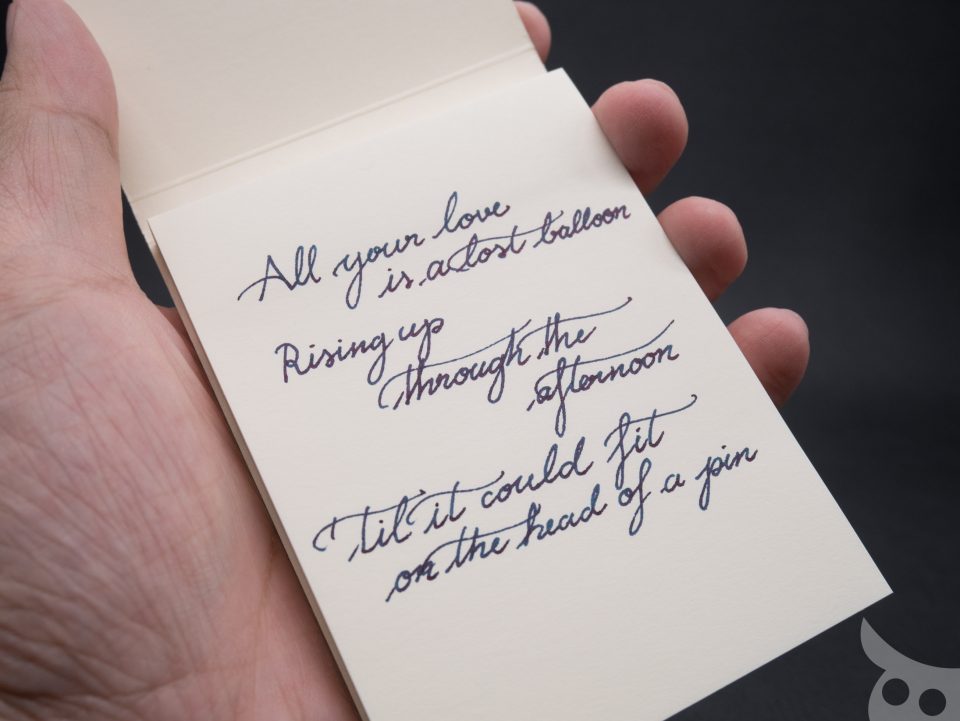 All your love
is a lost balloon
Rising up
through the
afternoon
'til it could fit
on the head of a pin